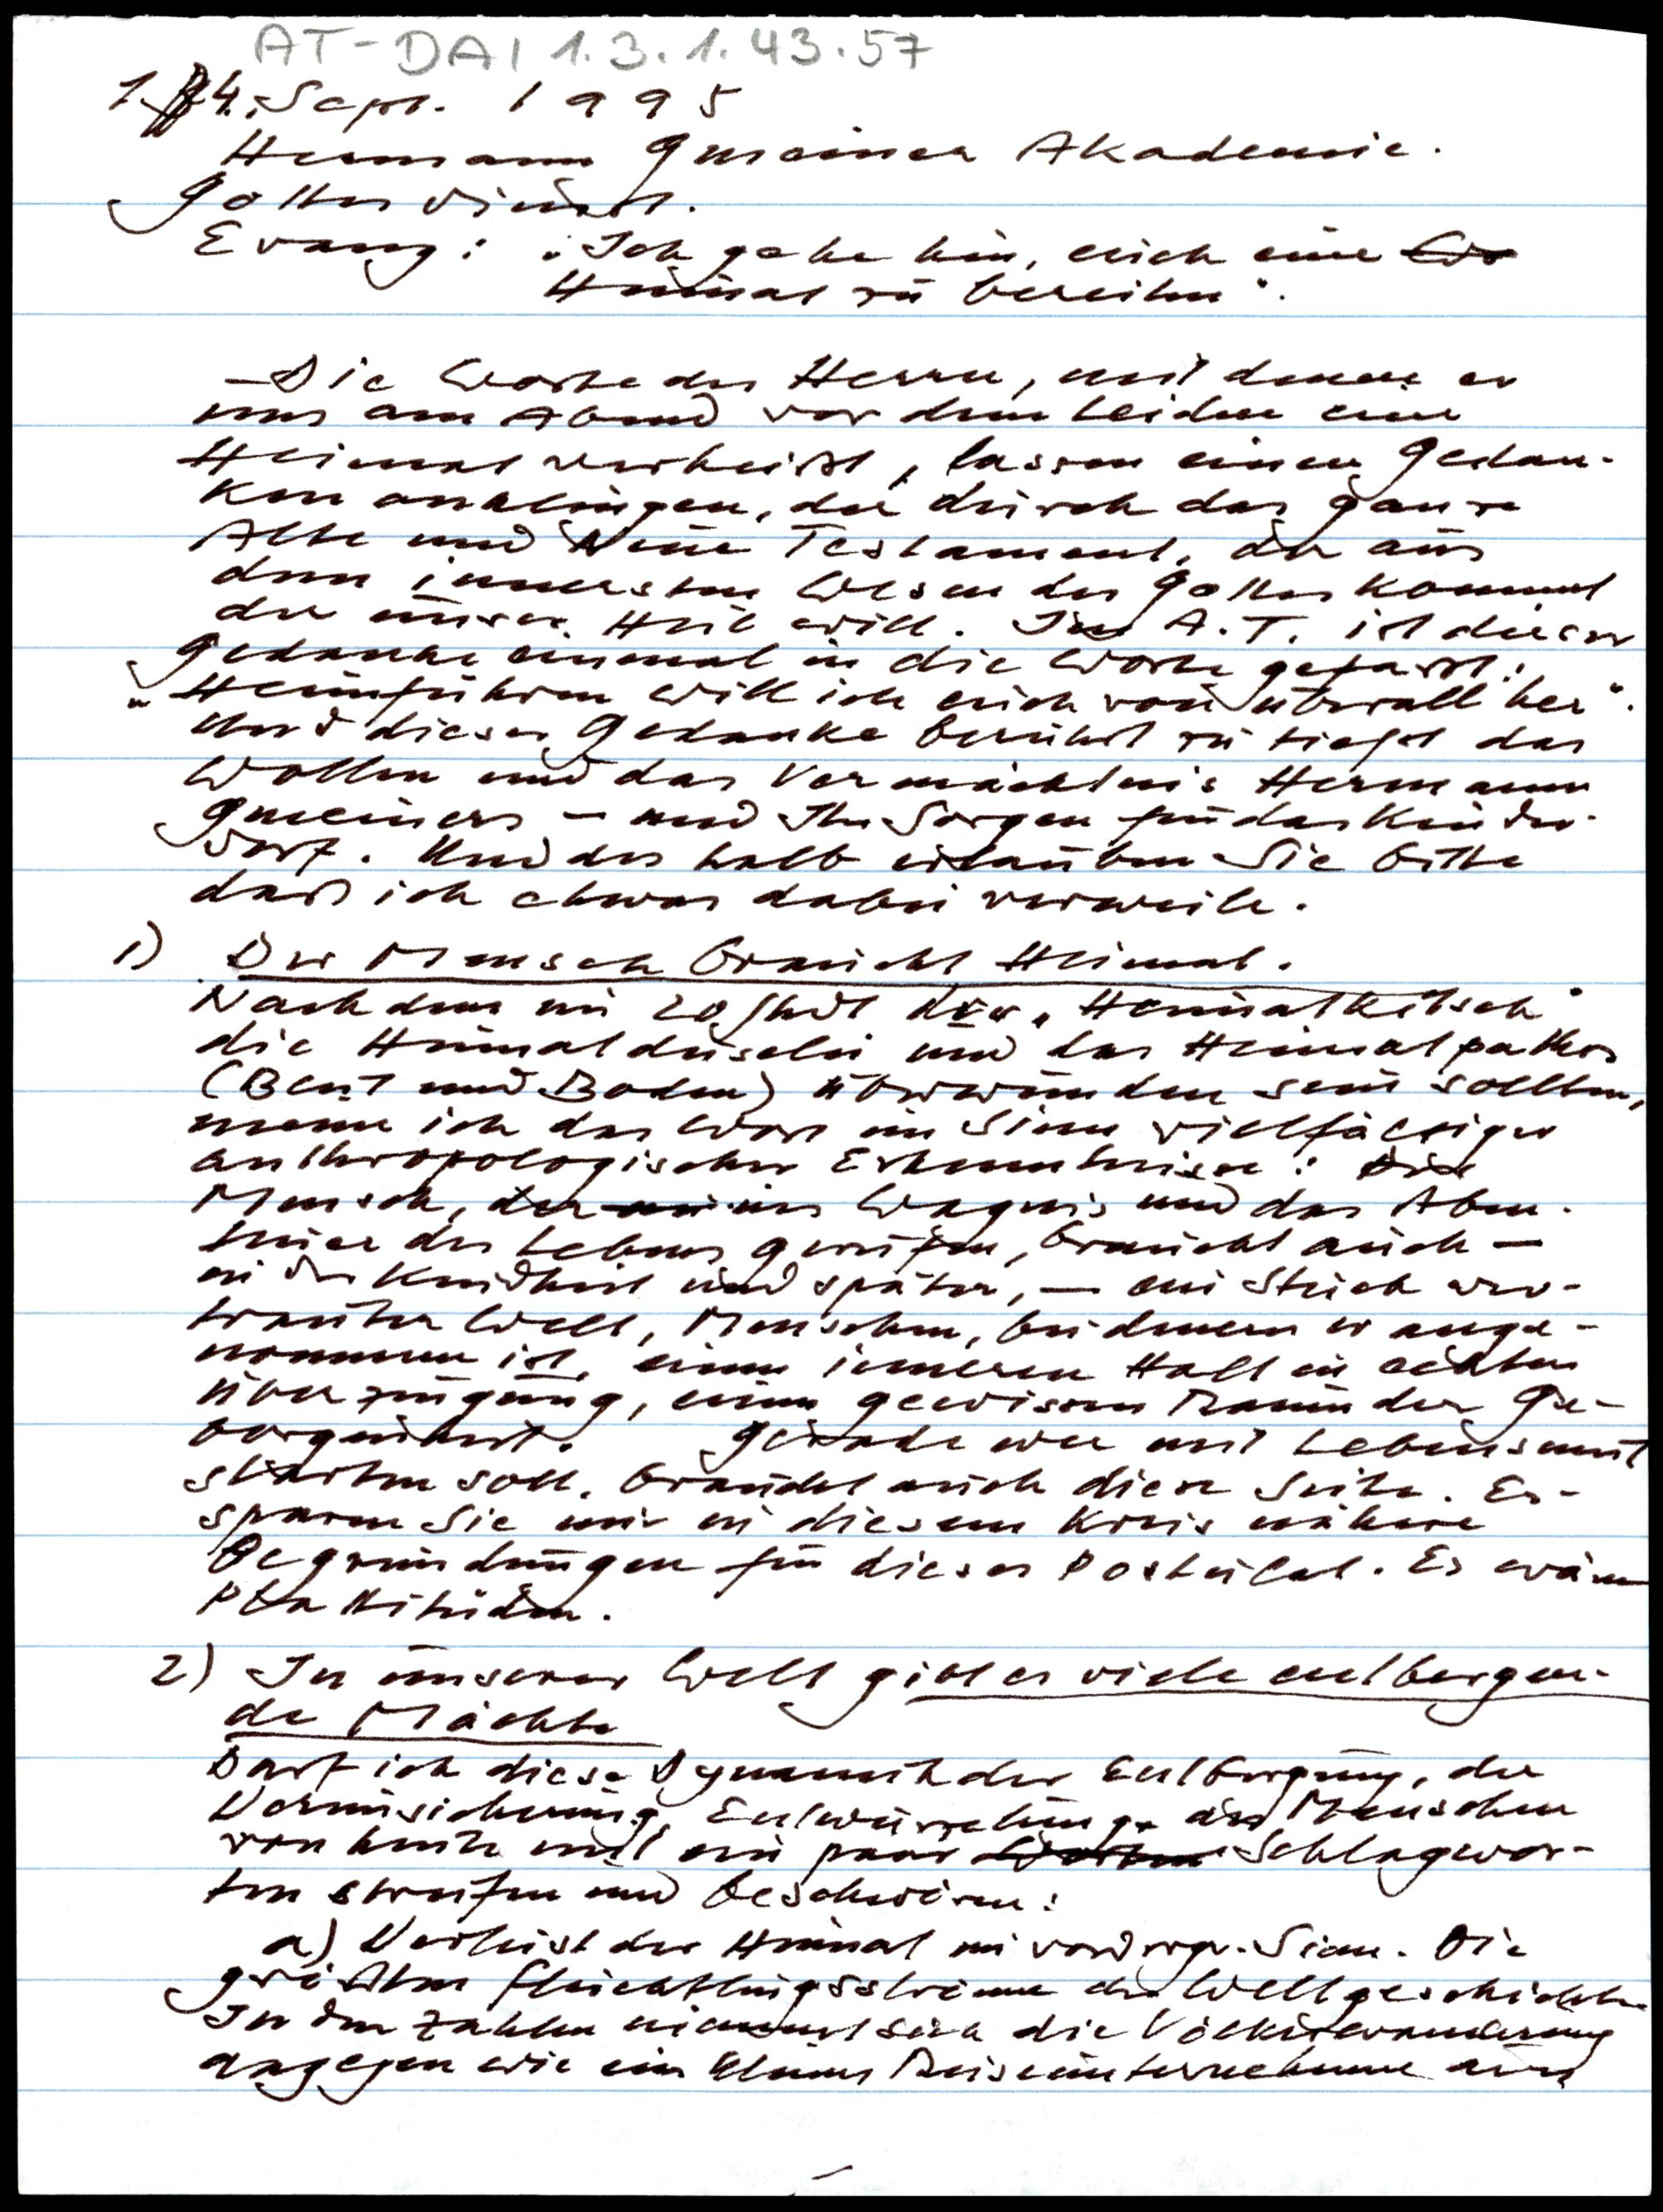 AT-DAI 1.3.1.43.57
14. Sept. 1995
Hermann Gmeiner Akademie.
Gottesdienst.
Evang: "Ich gehe hin, euch eine
Heimat zu bereiten".
– Die Worte des Herrn, mit denen er
uns am Abend vor dem Leiden eine
Heimat verheißt, lassen einen Gedan-
ken anklingen, der durch das ganze
Alte und Neue Testament, der aus
dem innersten Wesen des Gottes kommt
der unser Heil will. Im A.T. ist dieser
Gedanke einmal in die Worte gefasst:
"Heimführen will ich euch von überall her".
Und dieser Gedanke berührt zu tiefst das
Wollen und das Vermächtnis Hermann
Gmeiners – und Ihr Sorgen für das Kinder-
dorf. Und deshalb erlauben Sie bitte
dass ich etwas dabei verweile.
1) Der Mensch braucht Heimat.
Nachdem im 20 Jhdt der "Heimatkitsch"
die Heimatduselei und das Heimatpathos
(Blut und Boden) überwunden sein sollten,
meine ich das Wort im Sinn vielfältiger
anthropologischer Erkenntnisse: Der
Mensch, der ins Wagnis und das Aben-
teuer des Lebens gerufen, braucht auch –
in der Kindheit und später, – ein Stück ver-
trauter Welt, Menschen, bei denen er ange-
nommen ist, einen inneren Halt in echter
Überzeugung, einen gewissen Raum der Ge-
borgenheit. Gerade wer mit Lebensmut
starten soll, braucht auch diese Seite. Er-
sparen Sie mir in diesem Kreis nähere
Begründungen für dieses Postulat. Es wären
Plattitüden.
2) In unserer Welt gibt es viele entbergen-
de Mächte
Darf ich diese Dynamik der Entbergung, der
Verunsicherung, Entwurzelung des Menschen
von heute mit ein paar Schlagwor-
ten streifen und beschwören:
a) Verlust der Heimat im vordergr. Sinn. Die
größten Flüchtlingsströme der Weltgeschichte.
In den Zahlen nimmt sich die Völkerwanderung
dagegen wie ein kleines Reiseunternehmen aus